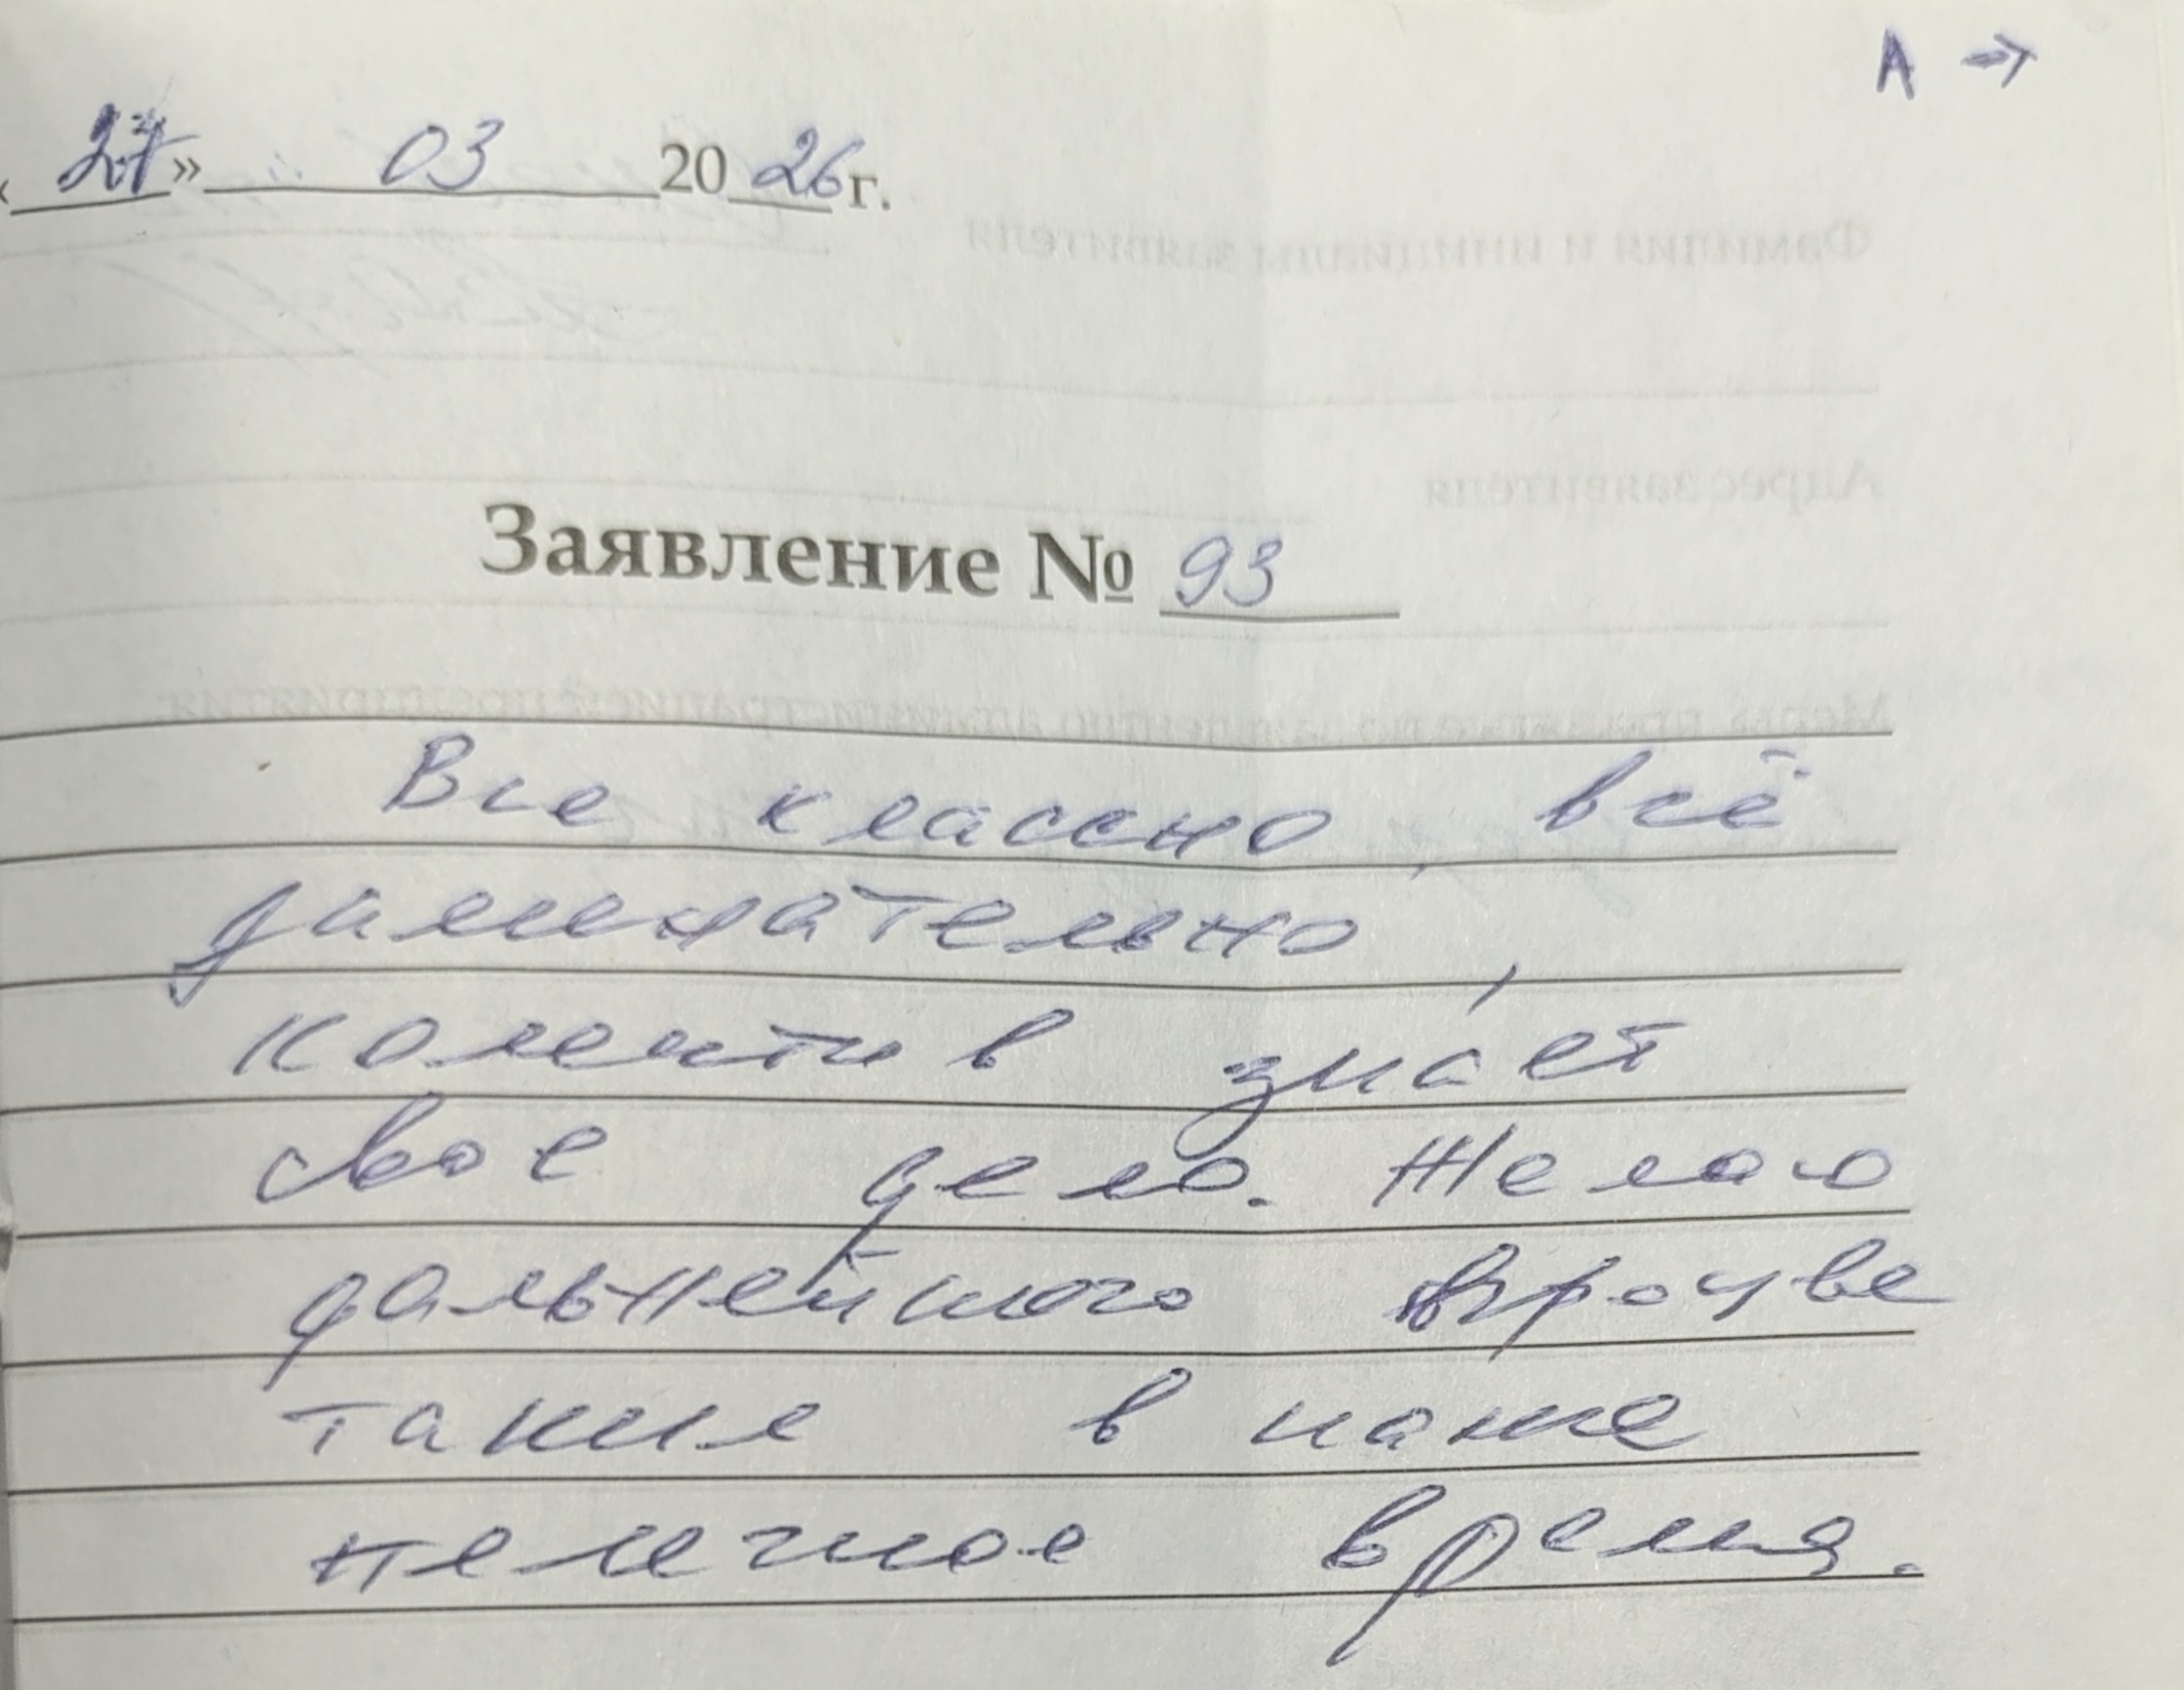 А →
« 27 » 03 20 26 г.
Заявление № 93
Все классно, всё
замечательно,
колектив знает
свое дело. Желаю
дальнейшого
такие в наше
нелегкое время.